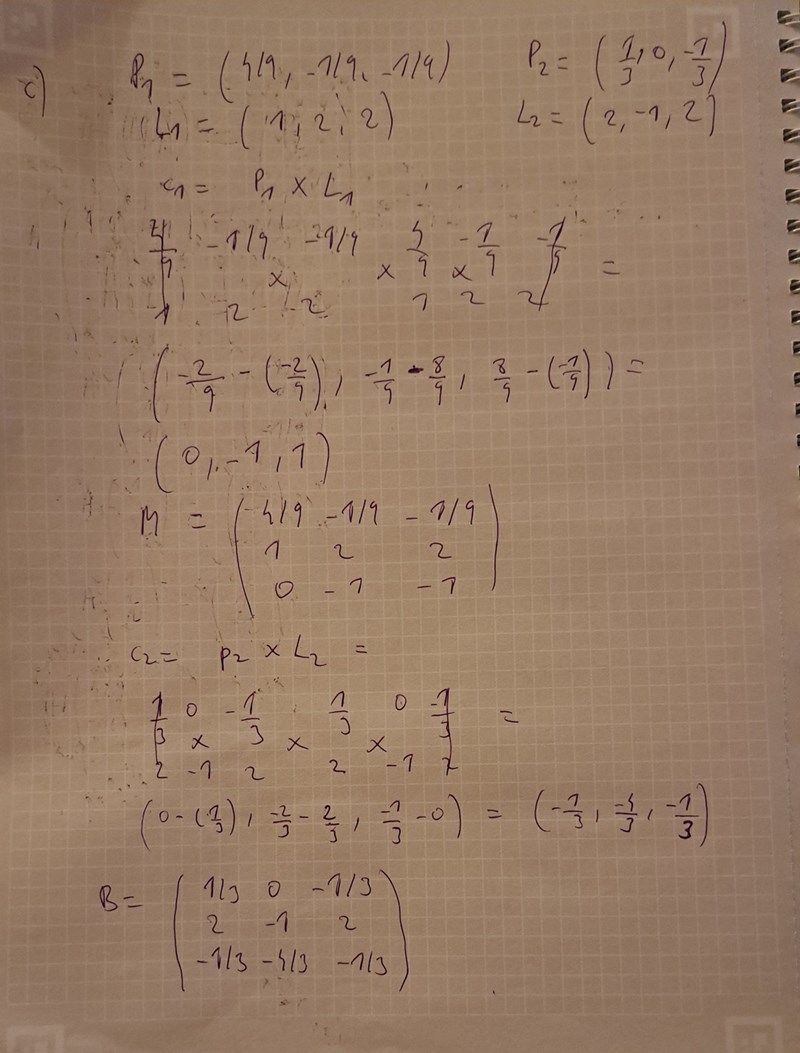 c) P₁ = (4/9, -1/9, -1/9) P₂ = (1/3, 0, -1/3)
L₁ = (1, 2, 2) L₂ = (2, -1, 2)
c₁ = P₁ × L₁
4/9 -1/9 -1/9 4/9 -1/9 -1/9 =
× × ×
1 2 2 1 2 2
(-2/9 - (-2/9), -1/9 - 8/9, 8/9 - (-1/9)) =
(0, -1, 1)
M = (4/9 -1/9 -1/9
1 2 2
0 -1 -1)
c₂ = P₂ × L₂ =
1/3 0 -1/3 1/3 0 -1/3 =
× × ×
2 -1 2 2 -1 2
(0 - (1/3), -2/3 - 2/3, -1/3 - 0) = (-1/3, -4/3, -1/3)
B = (1/3 0 -1/3
2 -1 2
-1/3 -4/3 -1/3)